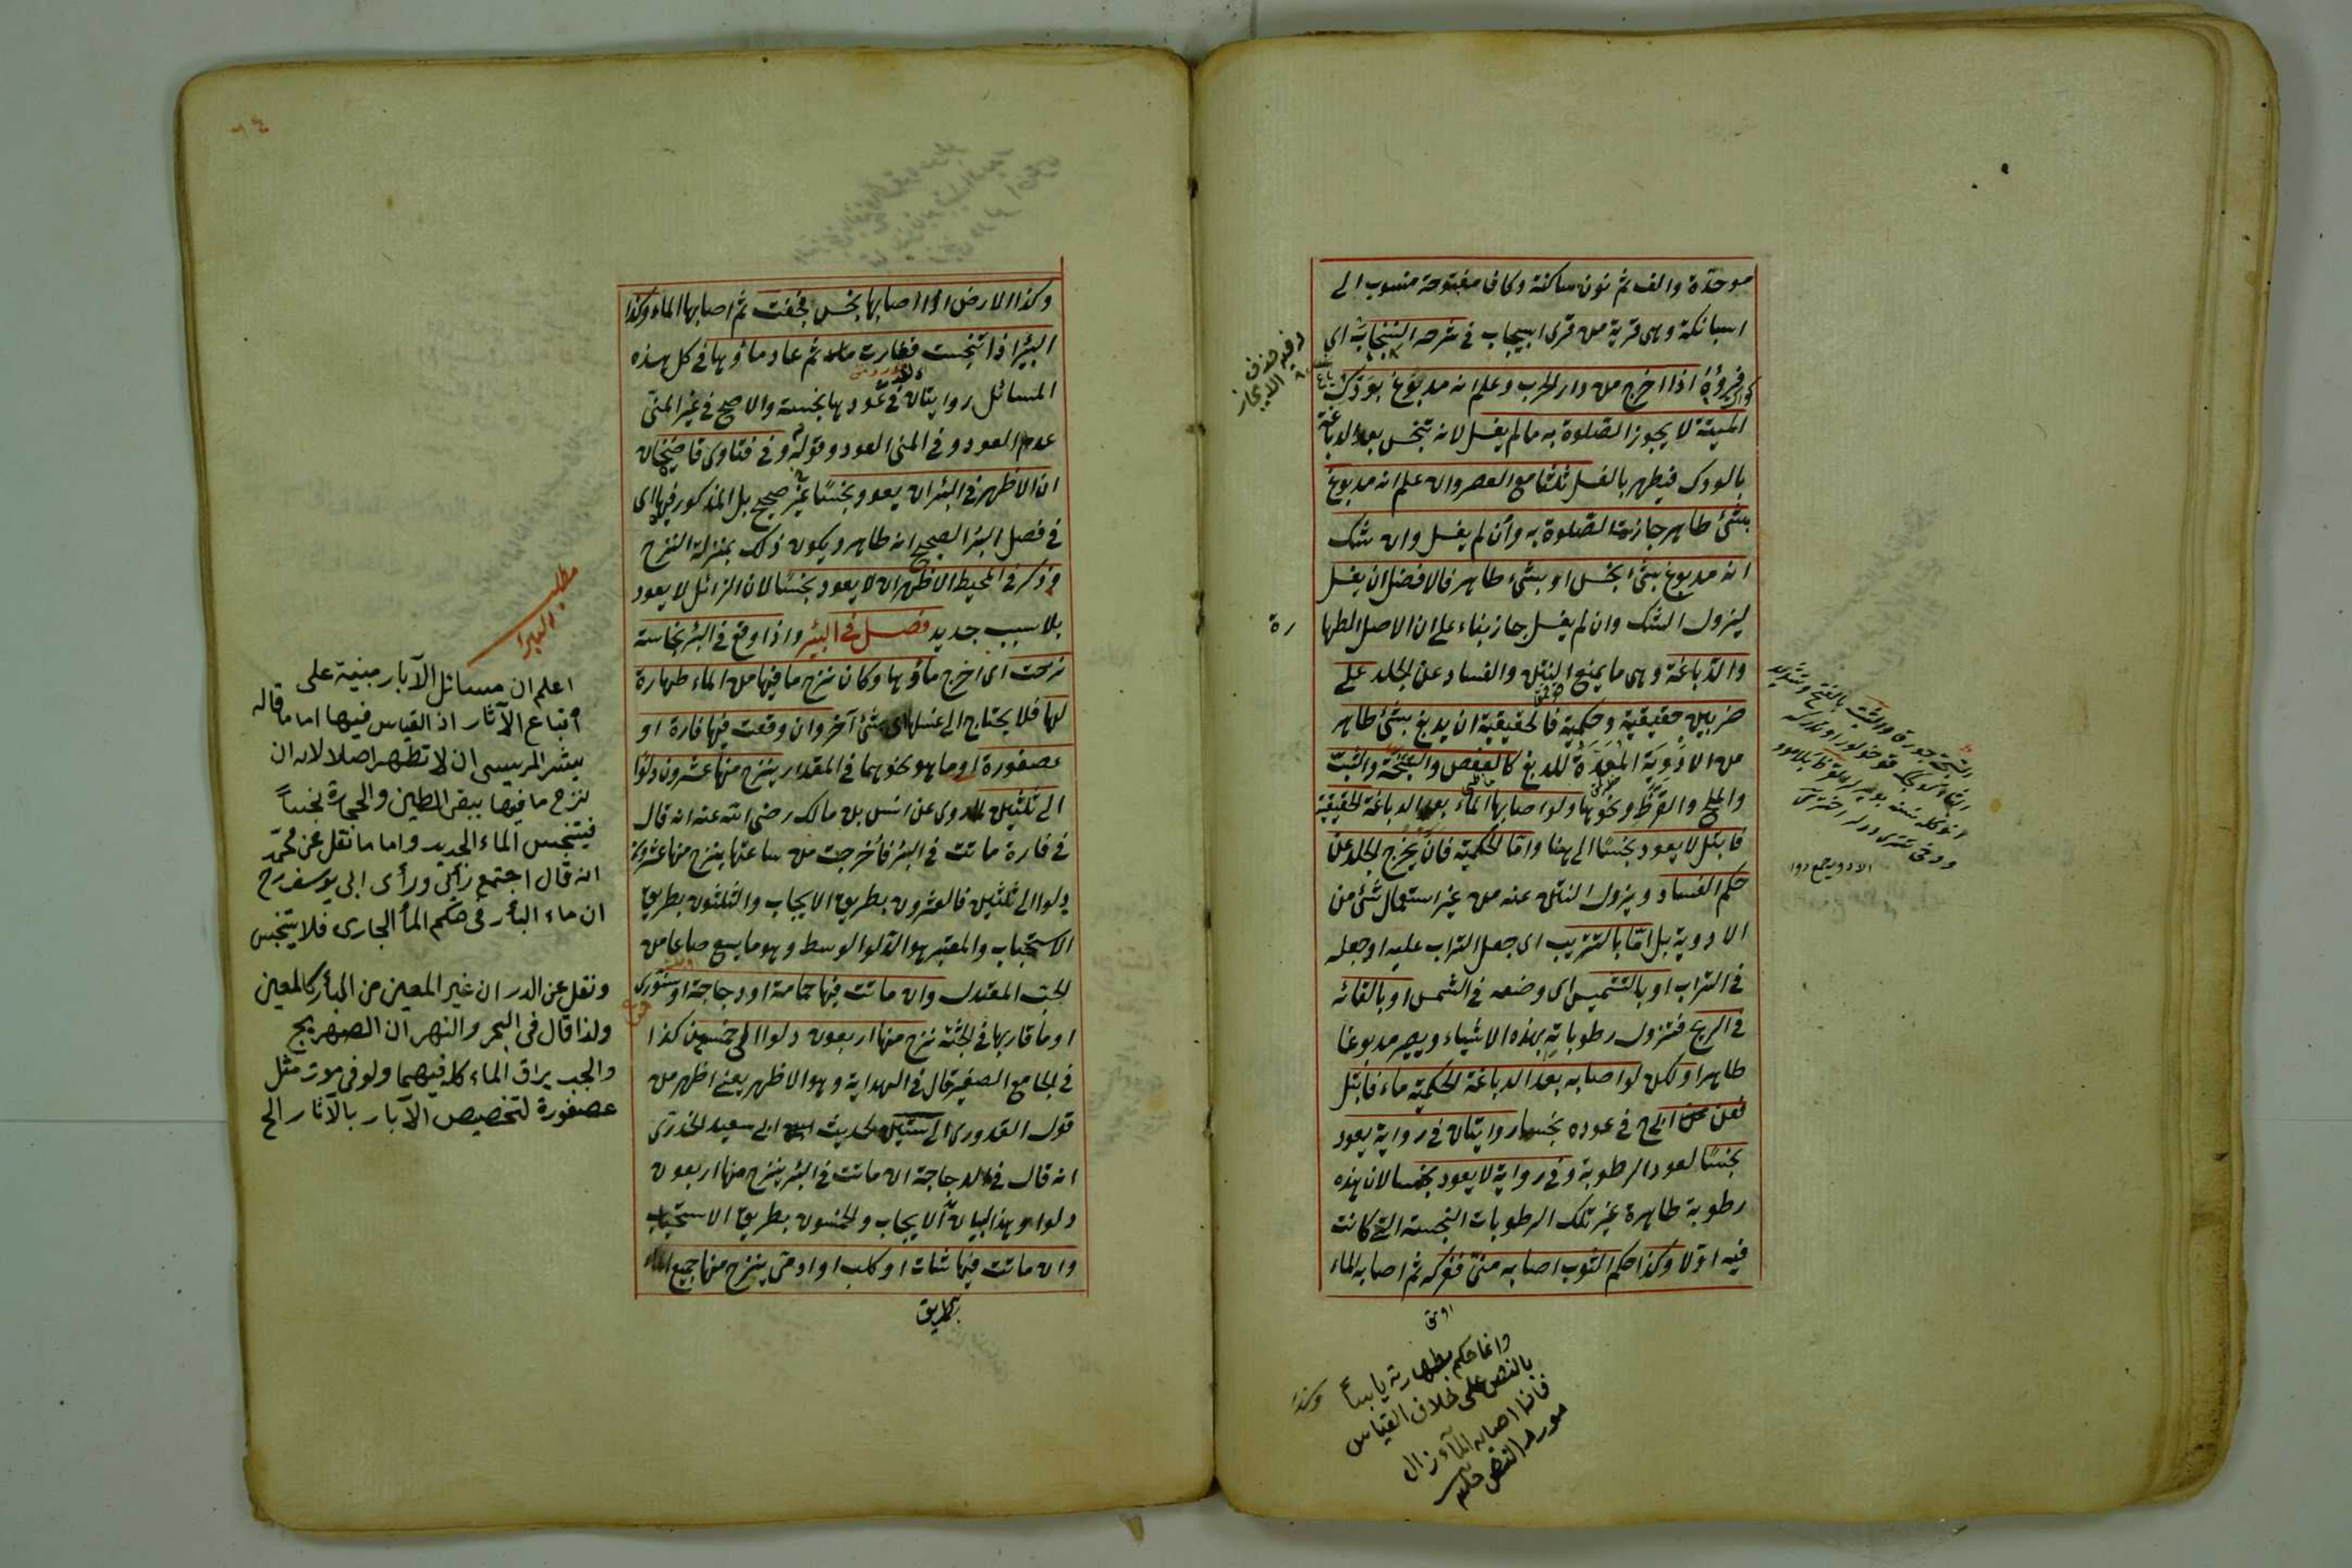 موحدة والف ثم نون ساكنة وكاف مفتوحة منسوب الى
اسبانكة وهى قرية من قرى اسبيجاب فى شرحه السنجاب اى
فروة اذا اخرج من دار الحرب وعلم انه مدبوغ بودك
الميتة لا يجوز الصلوة به ما لم يغسل لانه تنجس بعد الدباغة
بالودك فيطهر بالغسل ثلثا مع العصر وان علم انه مدبوغ
بشئ طاهر جازت الصلوة به وان لم يغسل وان شك
انه مدبوغ بشئ نجس او بشىء طاهر فالافضل ان يغسل
ليزول الشك وان لم يغسل جاز بناء على ان الاصل الطها
رة
والدباغة وهى ما يمنع النتن والفساد عن الجلد على
ضربين حقيقية وحكمية فالحقيقية ان يدبغ بشئ طاهر
من الادوية المعدة للدبغ كالعفص والسبخة والشب
والملح والقرظ ونحوها ولو اصابها الماء بعد الدباغة الحقيقية
فابتل لا يعود نجسا الى هنا واما الحكمية فان يخرج الجلد عن
حكم الفساد ويزول النتن عنه من غير استعمال شئ من
الادوية بل اما بالتتريب اى جعل التراب عليه او جعله
فى التراب او بالتشميس اى وضعه فى الشمس او بالقائه
فى الريح فتزول رطوباته بهذه الاشياء ويصير مدبوغا
طاهرا ولكن لو اصابه بعد الدباغة الحكمية ماء فابتل
فعن ابى ح فى عوده نجسا روايتان فى رواية يعود
نجسا لعود الرطوبة وفى رواية لا يعود نجسا لان هذه
رطوبة طاهرة غير تلك الرطوبات النجسة التى كانت
فيه اولا وكذا حكم الثوب اصابه منى ففركه ثم اصابه الماء
وانما حكم بطهارته يابسا
بالنص على خلاف القياس
فاذا اصابه الماء زال
مورد النص
وكذا
الادوية جمع دوا
وكذا الارض اذا اصابها نجس فجفت ثم اصابها الماء وكذا
البئر اذا تنجست فغارت ثم عاد ماؤها فى كل هذه
المسائل روايتان فى عودها نجسة والاصح فى غير المنى
عدم العود وفى المنى العود وقوله وفى فتاوى قاضيخان
ان الاظهر فى البئر ان يعود نجسا غير صحيح بل المذكور فيها اى
فى فصل البئر الصحيح انه طاهر ويكون ذلك بمنزلة النزح
وذكر فى المحيط الاظهر ان لا يعود نجسا لان الزائل لا يعود
بلا سبب جديد فصل فى البئر واذا وقع فى البئر نجاسة
نزحت اى اخرج ماؤها وكان نزح ما فيها من الماء طهارة
لها فلا يحتاج الى غسلها شئ آخر وان وقعت فيها فارة او
عصفورة او ما هو نحوهما فى المقدار ينزح منها عشرون دلوا
الى ثلثين لما روى عن انس بن مالك رضى الله عنه انه قال
فى فارة ماتت فى البئر فاخرجت من ساعتها ينزح منها عشرون
دلوا الى ثلثين فالعشرون بطريق الايجاب والثلثون بطريق
الاستحباب والمعتبر هو الدلو الوسط وهو ما يسع صاعا من
الحب المعتدل وان ماتت فيها حمامة او دجاجة او سنور
او ما قاربها فى الجثة نزح منها اربعون دلوا الى خمسين كذا
فى الجامع الصغير قال فى الهداية وهو الاظهر يعنى اظهر من
قول القدورى الى ستين لحديث ابى سعيد الخدرى
انه قال فى الدجاجة ان ماتت فى البئر ينزح منها اربعون
دلوا وهذا لبيان الايجاب والخمسون بطريق الاستحباب
وان ماتت فيها شات او كلب او ادمى ينزح منها جميع الماء
بطريق
مطلب
اعلم ان مسائل الآبار مبنية على
اتباع الآثار اذ القياس فيها اما ما قاله
بشر المريسى ان لا تطهر اصلا لانه ان
نزح ما فيها يبقى الطين والحجارة نجسا
فيتنجس الماء الجديد واما ما نقل عن محمد
انه قال اجتمع رأئى ورأى ابى يوسف رح
ان ماء البأر فى حكم الماء الجارى فلا يتنجس
ونقل عن الدر ان غير المعين من البأر كالمعين
ولذا قال فى البحر والنهر ان الصهريج
والجب يراق الماء كله فيهما ولو فى موت مثل
عصفورة لتخصيص الآبار بالآثار الخ